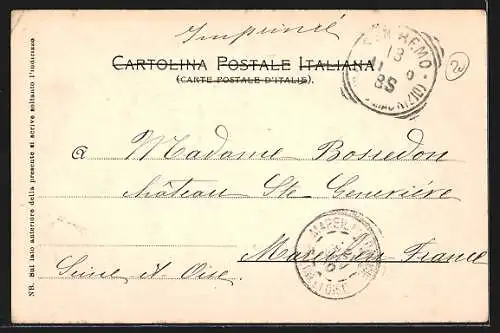 Imprimé
CARTOLINA POSTALE ITALIANA
(CARTE POSTALE D'ITALIE).
SAN REMO
18
à Madame Bossedon
Château Ste Geneviève
Marcil France
Seine et Oise
NB. Sul lato anteriore della presente si scrive soltanto l'indirizzo